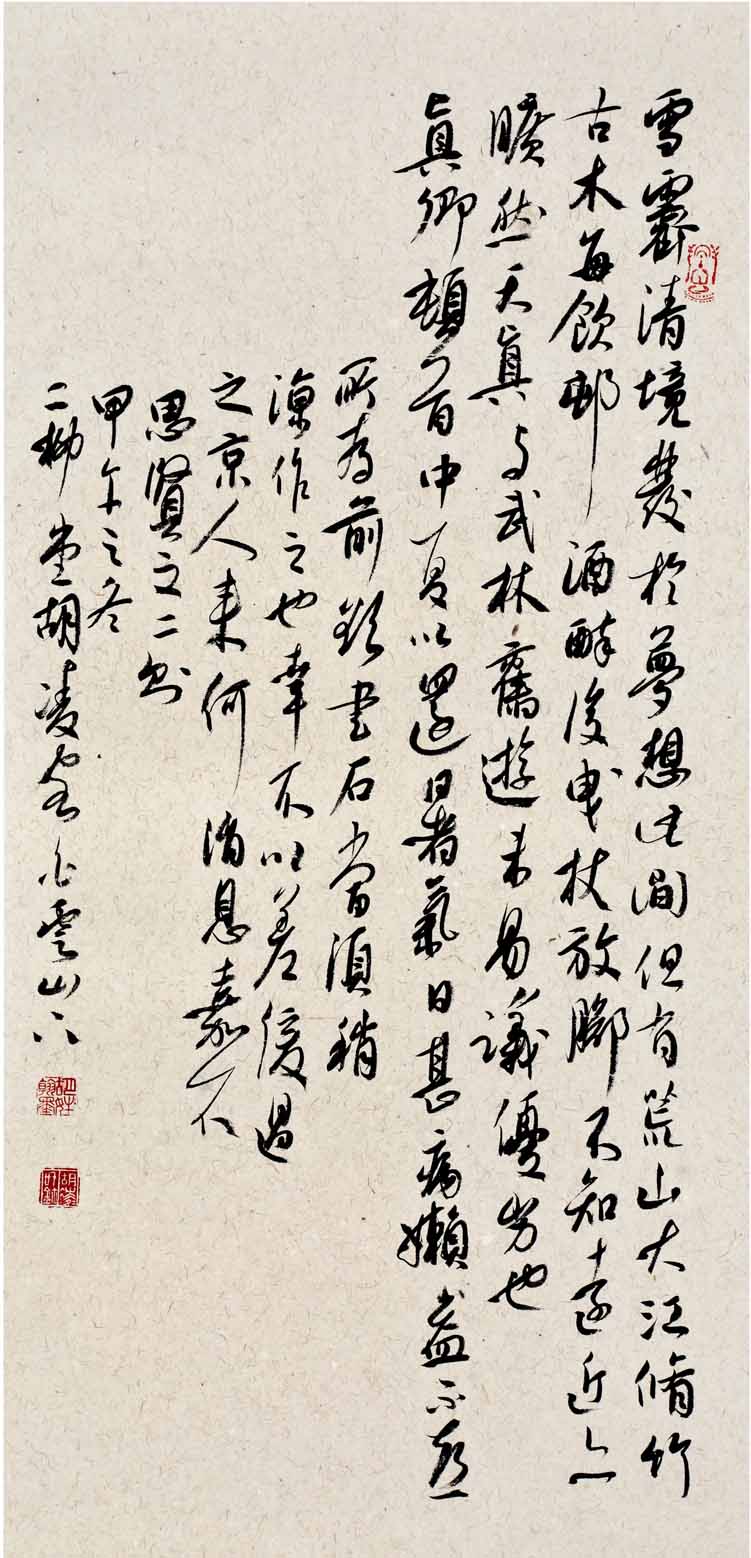 雪霽清境發於夢想此間但有荒山大江脩竹
古木每飲邨酒醉後曳杖放腳不知遠近亦
曠然天真与武林舊遊未易議優劣也
真卿頓首中夏以還暑氣日甚病懶益不
所為前欵書石當須稍
涼作之也幸不以差緩過
之京人來何消息嘉不
思賢文二則
甲午之冬
二柳堂胡凌客白雲山下